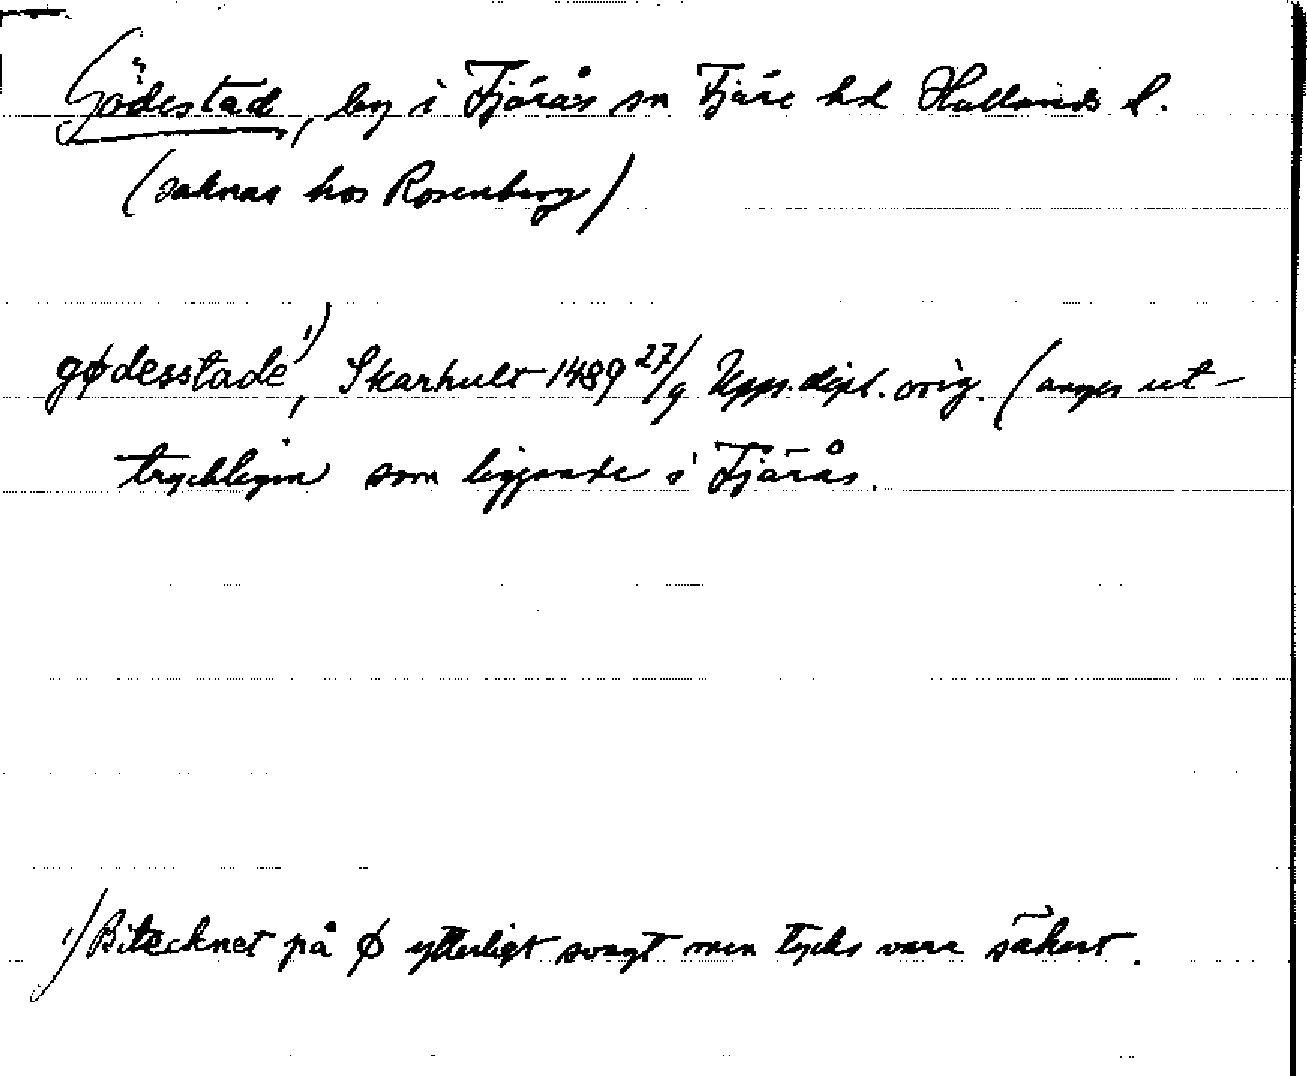 Gödestad, by i Fjärås sn Fjäre hd Hallands l.
(saknas hos Rosenberg)
gødesstade¹⁾, Skarhult 1489 27/9 Upps. dipl. orig. (anges ut-
tryckligen som liggande i Fjärås.
¹⁾ Bitecknet på ø ytterligt svagt men tycks vara säkert.